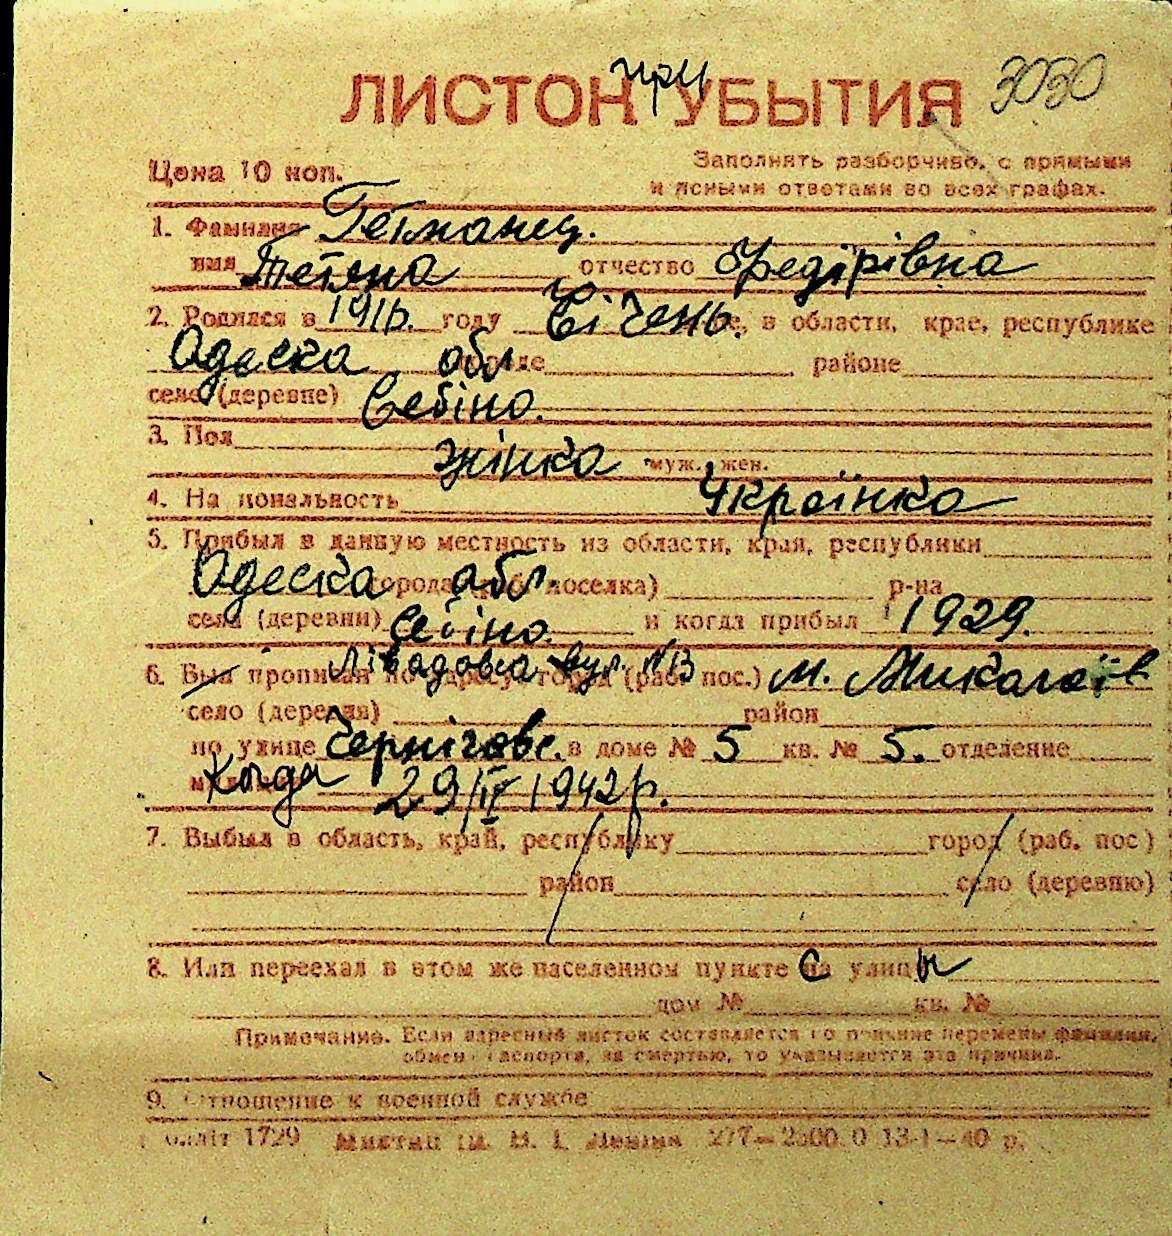 при
ЛИСТОК УБЫТИЯ 3030
Цена 10 коп. Заполнять разборчиво, с прямыми
и ясными ответами во всех графах.
1. Фамилия Гетманец.
имя Тетяна отчество Федірівна
2. Родился в 191 году Січень. в области, крае, республике
Одеска обл. районе
село (деревне) Себіно.
3. Пол
жінка муж., жен.
4. Национальность Українка
5. Прибыл в данную местность из области, края, республики
Одеска обл. города поселка) р-на
села (деревни) Себіно. и когда прибыл 1929.
6. Был прописан по адресу: город (раб. пос.) м. Миколаїв
село (деревня) район
по улице Черніговс. в доме № 5 кв. № 5. отделение
Когда 29/IV 1942 р.
7. Выбыл в область, край, республику город (раб. пос)
район село (деревню)
8. Или переехал в этом же населенном пункте с улицы
дом № кв. №
Примечание. Если адресный листок составляется по причине перемены фамилии,
обмена паспорта, за смертью, то указывается эта причина.
9. Отношение к военной службе
1729 277—2500.0 13-1—40 р.